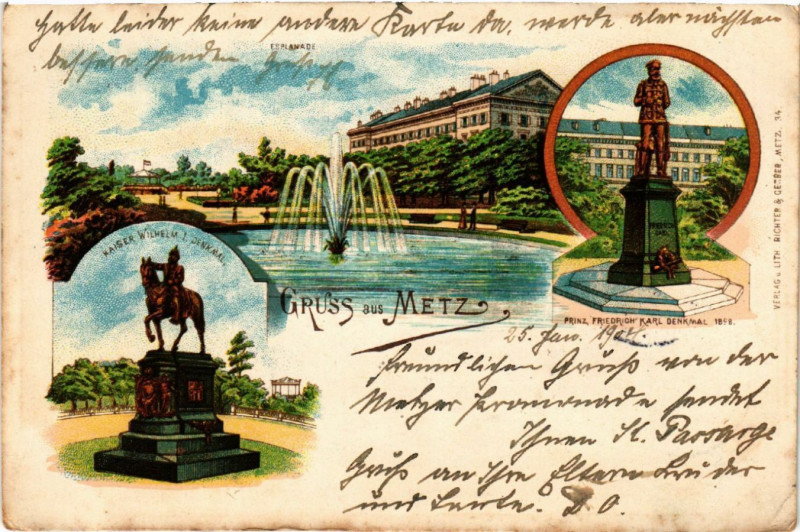 Hatte leider keine andere Karte da, werde aber nächstens
bessere senden
ESPLANADE
KAISER WILHELM I. DENKMAL.
GRUSS aus METZ
PRINZ FRIEDRICH KARL DENKMAL 1898.
VERLAG u. LITH. RICHTER & GERBER, METZ. 34.
25. Jan.
Freundlichen Gruß von der
Metzer Promenade sendet
Ihnen
Gruß an Ihre Eltern Brüder
und Tante.